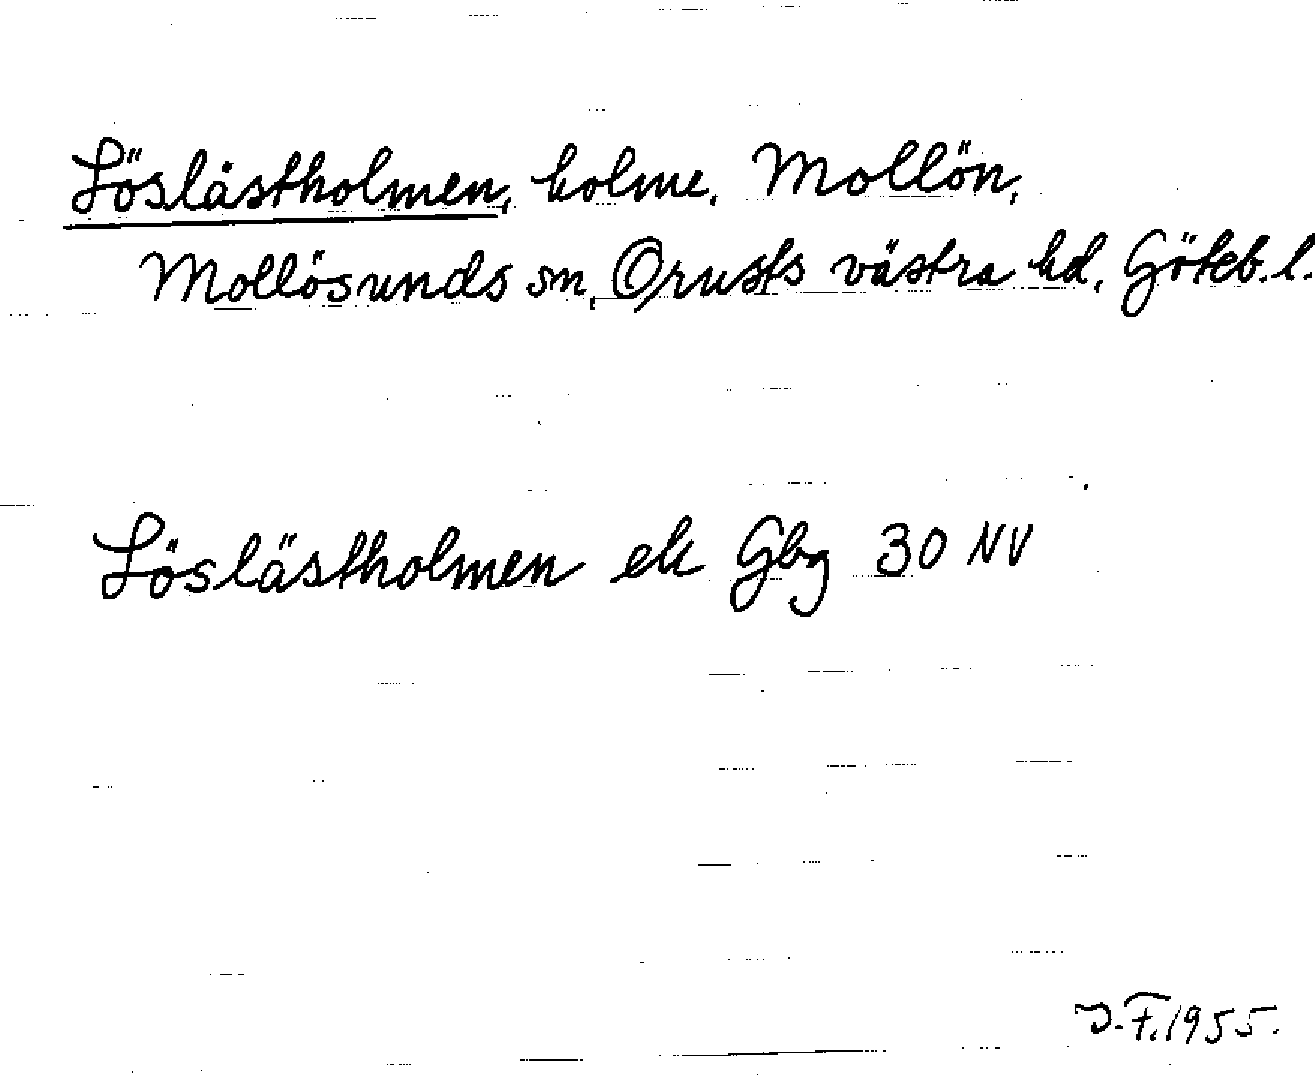 Löslåstholmen, holme, Mollön,
Mollösunds sn, Orusts västra hd, Göteb. l.
Löslästholmen ek Gbg 30 NV
J.F. 1955.